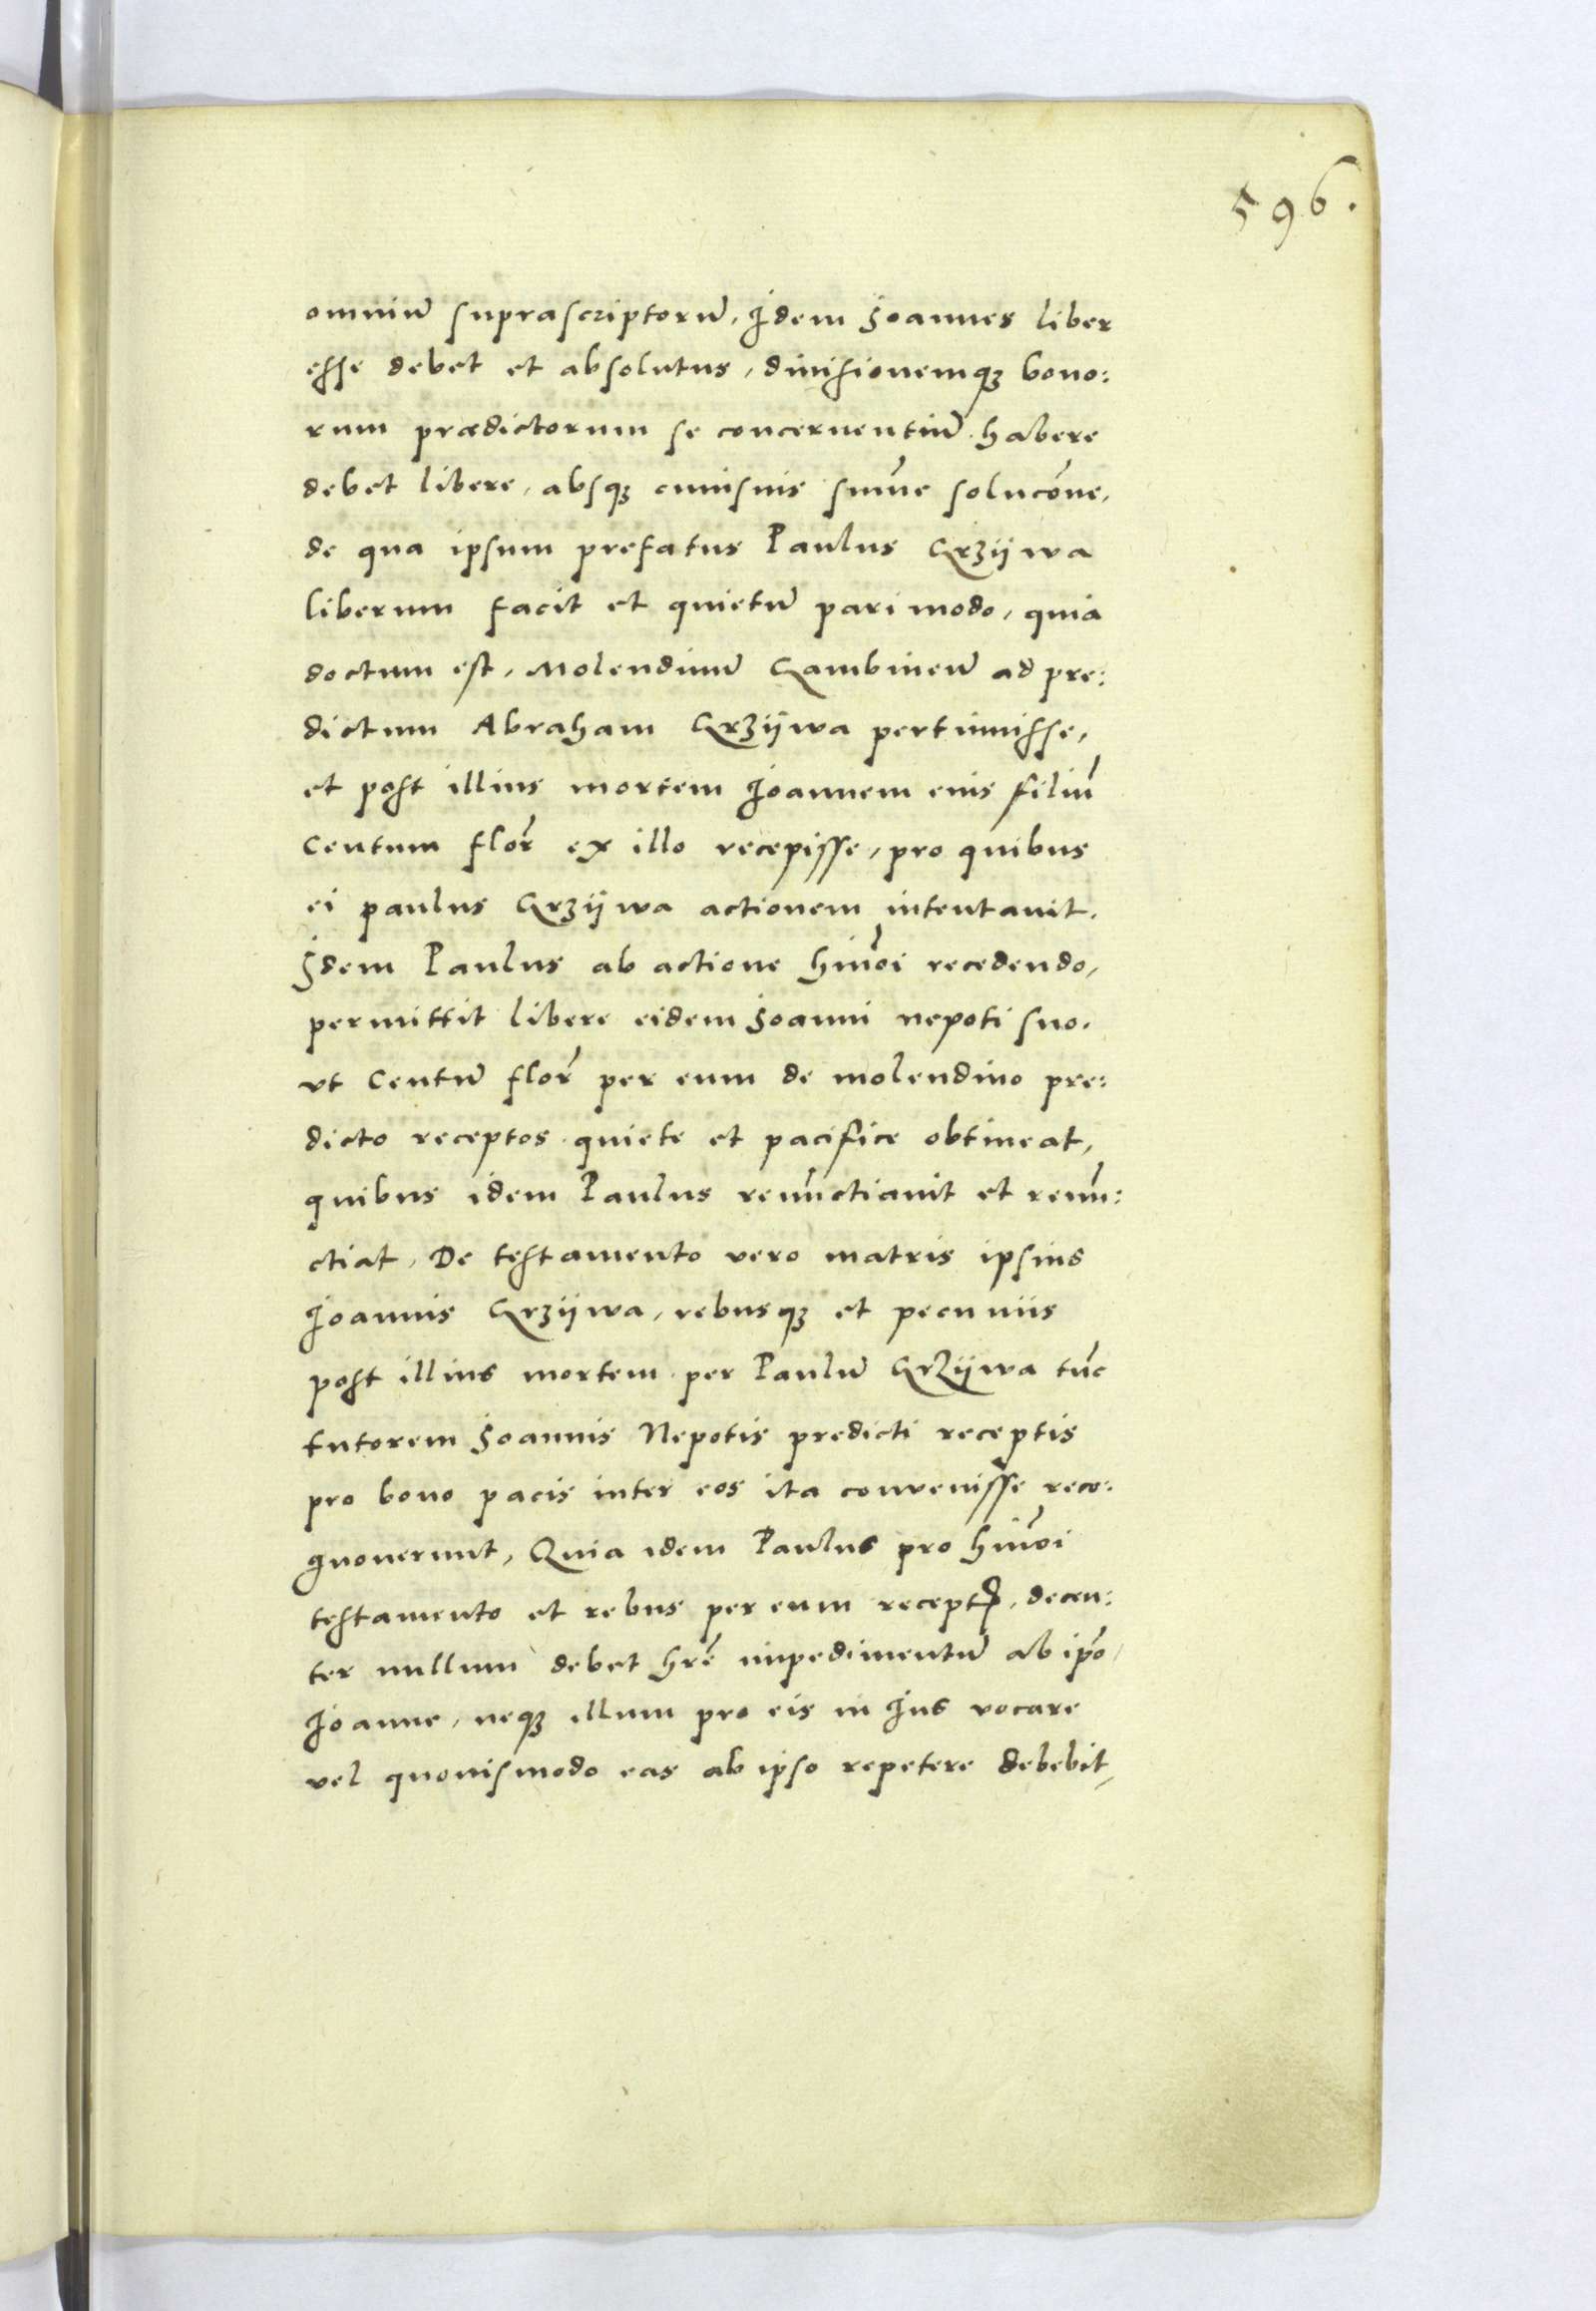 596.
omniū suprascriptorū. Idem Joannes liber
esse debet et absolutus, diuisionemqꝫ bono:
rum prædictorum se concernentiū habere
debet libere, absqꝫ cuiusuis sum̄e solucōne,
de qua ipsum prefatus Paulus Krzijwa
liberum facit et quietū pari modo, quia
doctum est, Molendinū Gambineū ad pre:
dictum Abraham Krzijwa pertinuisse,
et post illius mortem Joannem eius filiū
Centum flor̄ ex illo recepisse, pro quibus
ei paulus Krzijwa actionem intentauit.
Idem Paulus ab actione hmōi recedendo,
permittit libere eidem Joanni nepoti suo.
vt Centū flor̄ per eum de molendino pre:
dicto receptos quiete et pacifice obtineat,
quibus idem Paulus renūctiauit et renū:
ctiat, De testamento vero matris ipsius
Joannis Krzijwa, rebusqꝫ et pecuniis
post illius mortem per Paulū Krzijwa tūc
tutorem Joannis Nepotis predicti receptis
pro bono pacis inter eos ita convenisse reco:
gnouerunt, Quia idem Paulus pro hmōi
testamento et rebus per eum receptꝭ, decen:
ter nullum debet hrē impedimentū ab ip̄o
Joanne, neqꝫ illum pro eis in Jus vocare
vel quouismodo eas ab ipso repetere debebit,